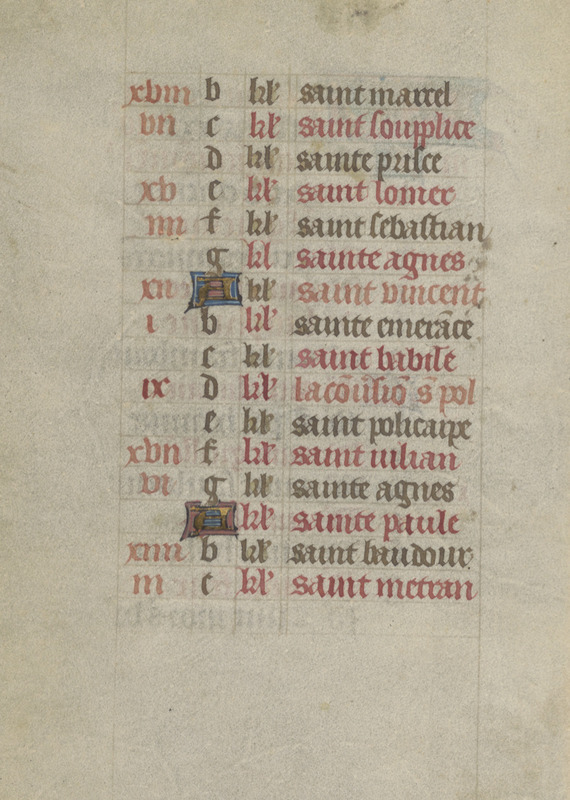 xviii b kl' saint marcel
vii c kl' saint souplice
d kl' sainte prisce
xv e kl' saint lomer
iiii f kl' saint sebastian
g kl sainte agnes
xii A kl' saint vincent
i b kl' sainte emerāce
c kl' saint babile
ix d kl' la cōūsiō s pol
e kl' saint policarpe
xvii f kl' saint iulian
vi g kl' sainte agnes
A kl' sainte paule
xiiii b kl' saint baudour
iii c kl' saint metran